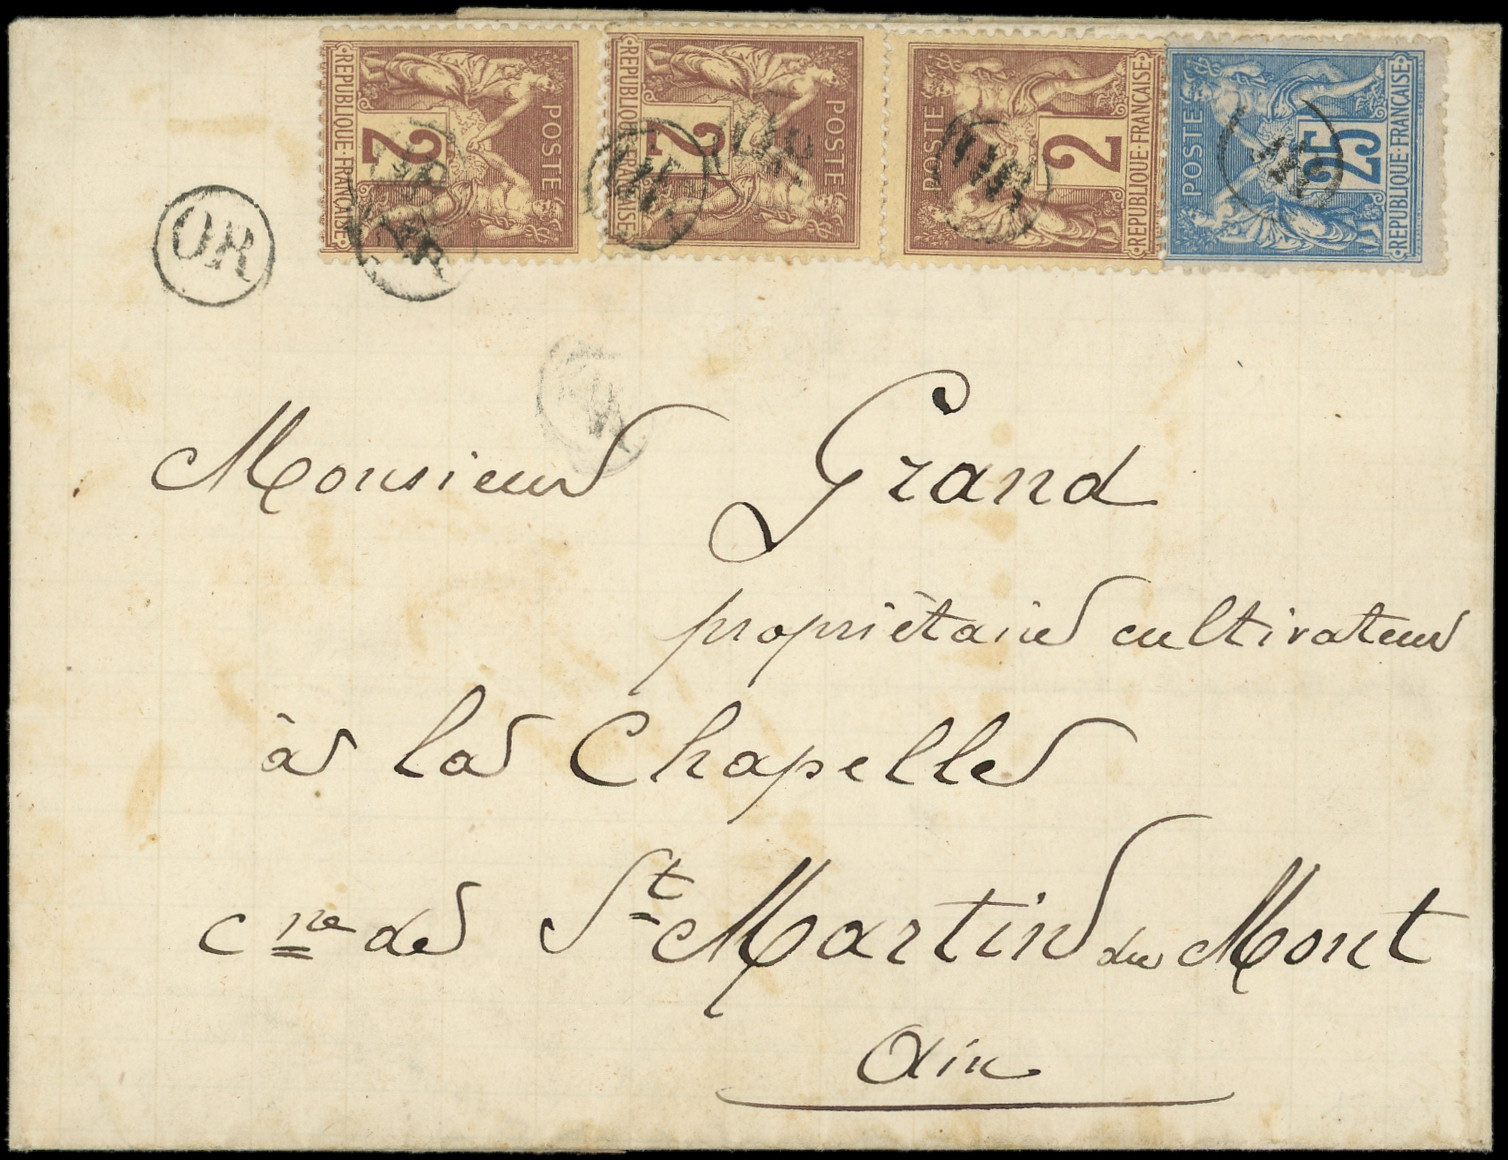 REPUBLIQUE·FRANÇAISE POSTE 2
REPUBLIQUE·FRANÇAISE POSTE 2
POSTE 2 REPUBLIQUE·FRANÇAISE
POSTE 25 REPUBLIQUE·FRANÇAISE
OR
Monsieur Grand
propriètaire cultivateur
à la Chapelle
cne de St Martin du Mont
Ain